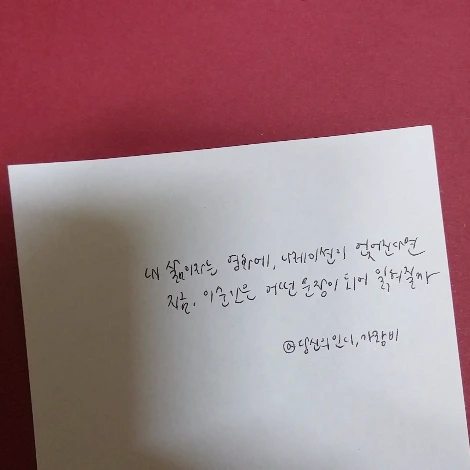 내 삶이라는 영화에, 나레이션이 얹어진다면
지금, 이 순간은 어떤 문장이 되어 읽혀질까
@당신의인디,가랑비